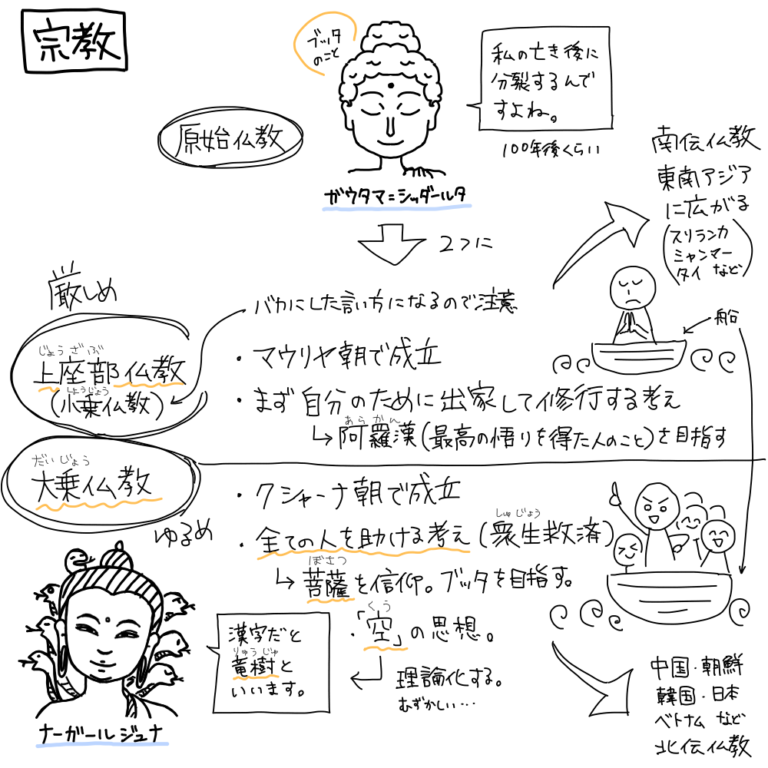 宗教
ブッタ
のこと
私の亡き後に
分裂するんで
すよね。
100年後くらい
原始仏教
ガウタマ=シッダールタ
2つに
南伝仏教
東南アジア
に広がる
(スリランカ
ミャンマー
タイ など)
船
厳しめ
バカにした言い方になるので注意
じょうざぶ
上座部仏教
しょうじょう
(小乗仏教)
・マウリヤ朝で成立
・まず自分のために出家して修行する考え
あらかん
↳阿羅漢(最高の悟りを得た人のこと)を目指す
だいじょう
大乗仏教
ゆるめ
・クシャーナ朝で成立
しゅじょう
・全ての人を助ける考え(衆生救済)
ぼさつ
↳菩薩を信仰。ブッタを目指す。
くう
・「空」の思想。
理論化する。
むずかしい…
漢字だと
りゅうじゅ
竜樹と
いいます。
ナーガールジュナ
中国・朝鮮
韓国・日本
ベトナム など
北伝仏教